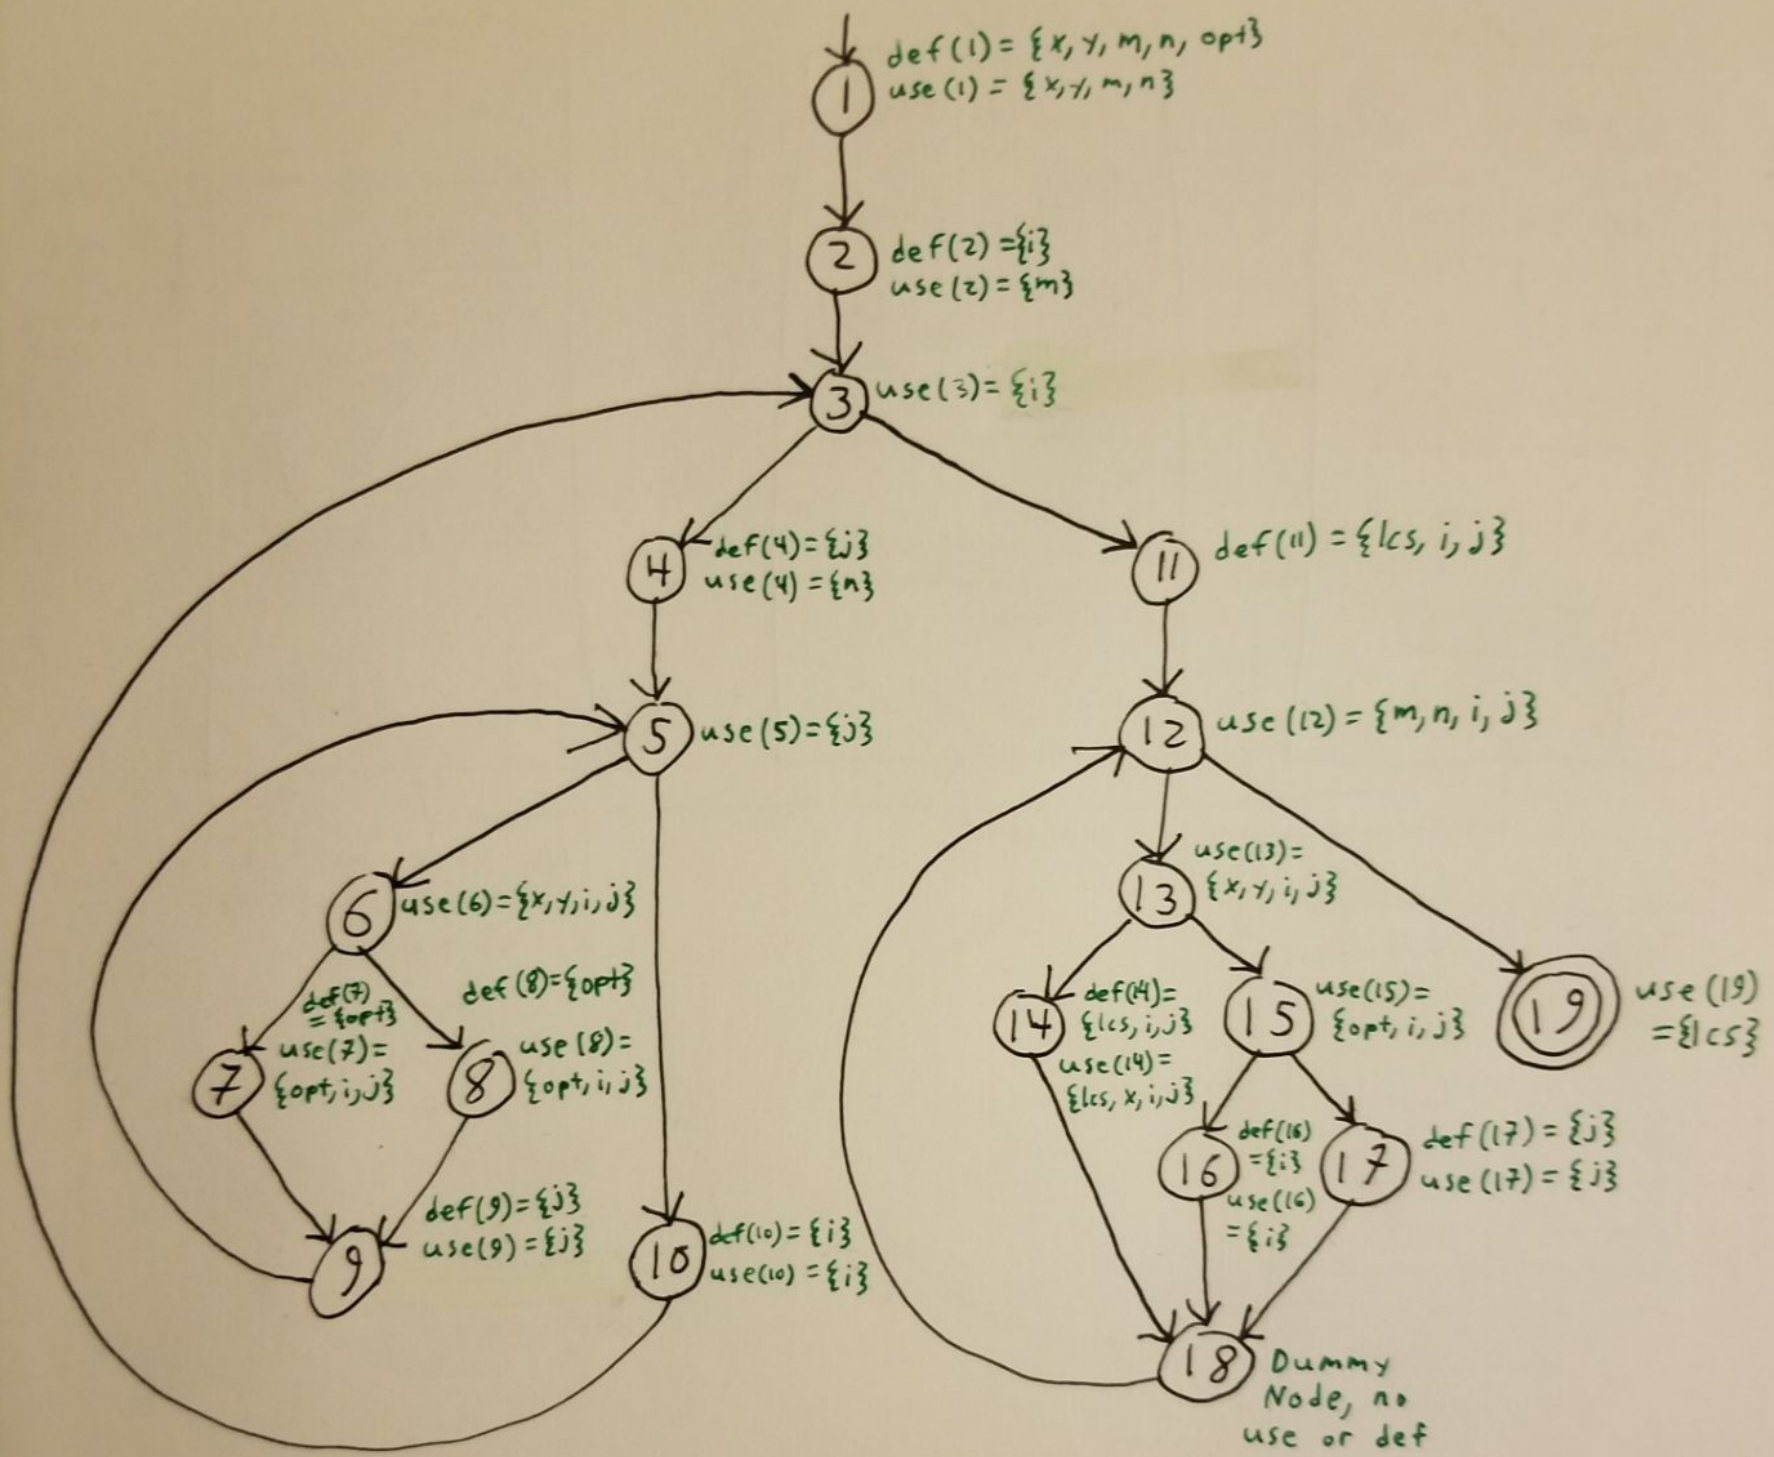 def(1) = {x, y, m, n, opt}
1
use(1) = {x, y, m, n}
2
def(2) = {i}
use(2) = {m}
3
use(3) = {i}
4
def(4) = {j}
use(4) = {n}
11
def(11) = {lcs, i, j}
5
use(5) = {j}
12
use(12) = {m, n, i, j}
6
use(6) = {x, y, i, j}
13
use(13) =
{x, y, i, j}
def(7)
= {opt}
7
use(7) =
{opt, i, j}
def(8) = {opt}
8
use(8) =
{opt, i, j}
14
def(14) =
{lcs, i, j}
use(14) =
{lcs, x, i, j}
15
use(15) =
{opt, i, j}
19
use(19)
= {lcs}
16
def(16)
= {i}
use(16)
= {i}
17
def(17) = {j}
use(17) = {j}
9
def(9) = {j}
use(9) = {j}
10
def(10) = {i}
use(10) = {i}
18
Dummy
Node, no
use or def